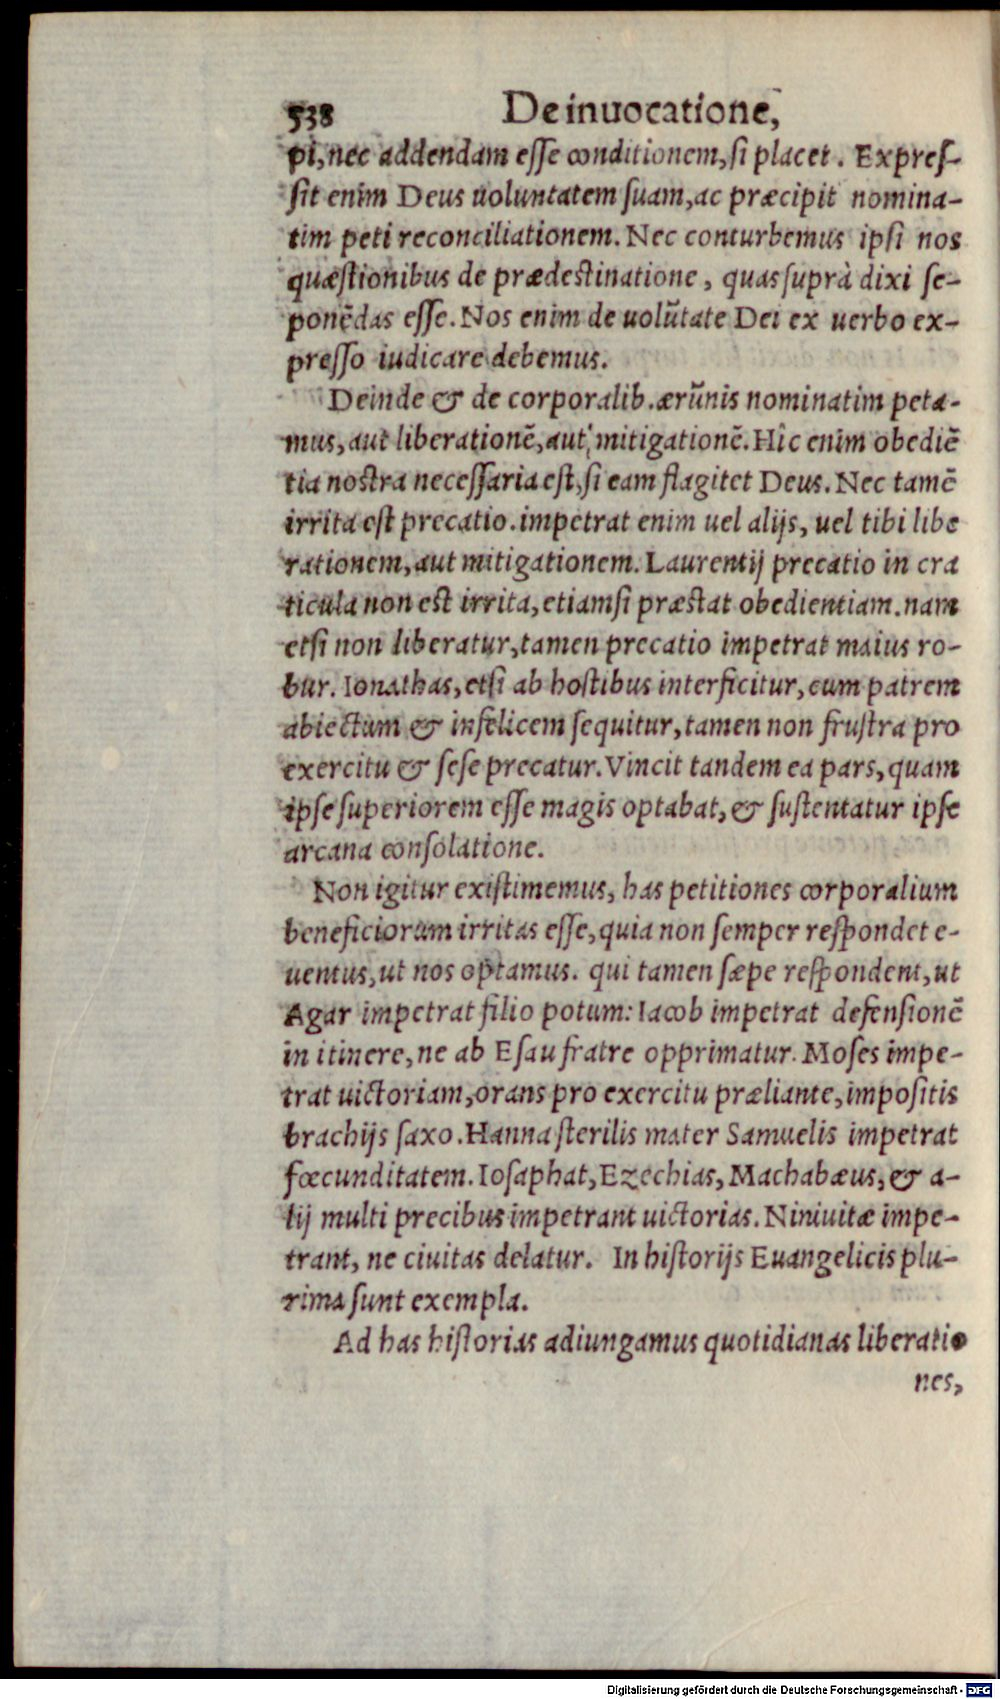 538 De inuocatione,
pi, nec addendam esse conditionem, si placet. Expres-
sit enim Deus uoluntatem suam, ac præcipit nomina-
tim peti reconciliationem. Nec conturbemus ipsi nos
quæstionibus de prædestinatione, quas suprà dixi se-
ponẽdas esse. Nos enim de uolũtate Dei ex uerbo ex-
presso iudicare debemus.
Deinde & de corporalib. ærũnis nominatim peta-
mus, aut liberationẽ, aut mitigationẽ. Hîc enim obediẽ
tia nostra necessaria est, si eam flagitet Deus. Nec tamẽ
irrita est precatio. impetrat enim uel alijs, uel tibi libe
rationem, aut mitigationem. Laurentij precatio in cra
ticula non est irrita, etiamsi præstat obedientiam. nam
etsi non liberatur, tamen precatio impetrat maius ro-
bur. Ionathas, etsi ab hostibus interficitur, cum patrem
abiectum & infelicem sequitur, tamen non frustra pro
exercitu & sese precatur. Vincit tandem ea pars, quam
ipse superiorem esse magis optabat, & sustentatur ipse
arcana consolatione.
Non igitur existimemus, has petitiones corporalium
beneficiorum irritas esse, quia non semper respondet e-
uentus, ut nos optamus. qui tamen sæpe respondent, ut
Agar impetrat filio potum: Iacob impetrat defensionẽ
in itinere, ne ab Esau fratre opprimatur. Moses impe-
trat uictoriam, orans pro exercitu præliante, impositis
brachijs saxo. Hanna sterilis mater Samuelis impetrat
fœcunditatem. Iosaphat, Ezechias, Machabæus, & a-
lij multi precibus impetrant uictorias. Niniuitæ impe-
trant, ne ciuitas delatur. In historijs Euangelicis plu-
rima sunt exempla.
Ad has historias adiungamus quotidianas liberatio
nes,
Digitalisierung gefördert durch die Deutsche Forschungsgemeinschaft - DFG